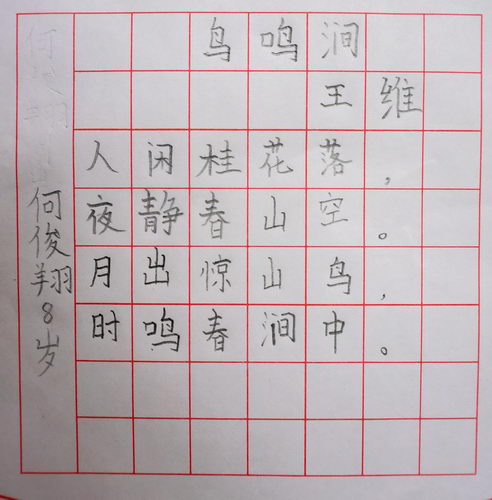 鸟鸣涧
王维
人闲桂花落，
夜静春山空。
月出惊山鸟，
时鸣春涧中。
何俊翔8岁